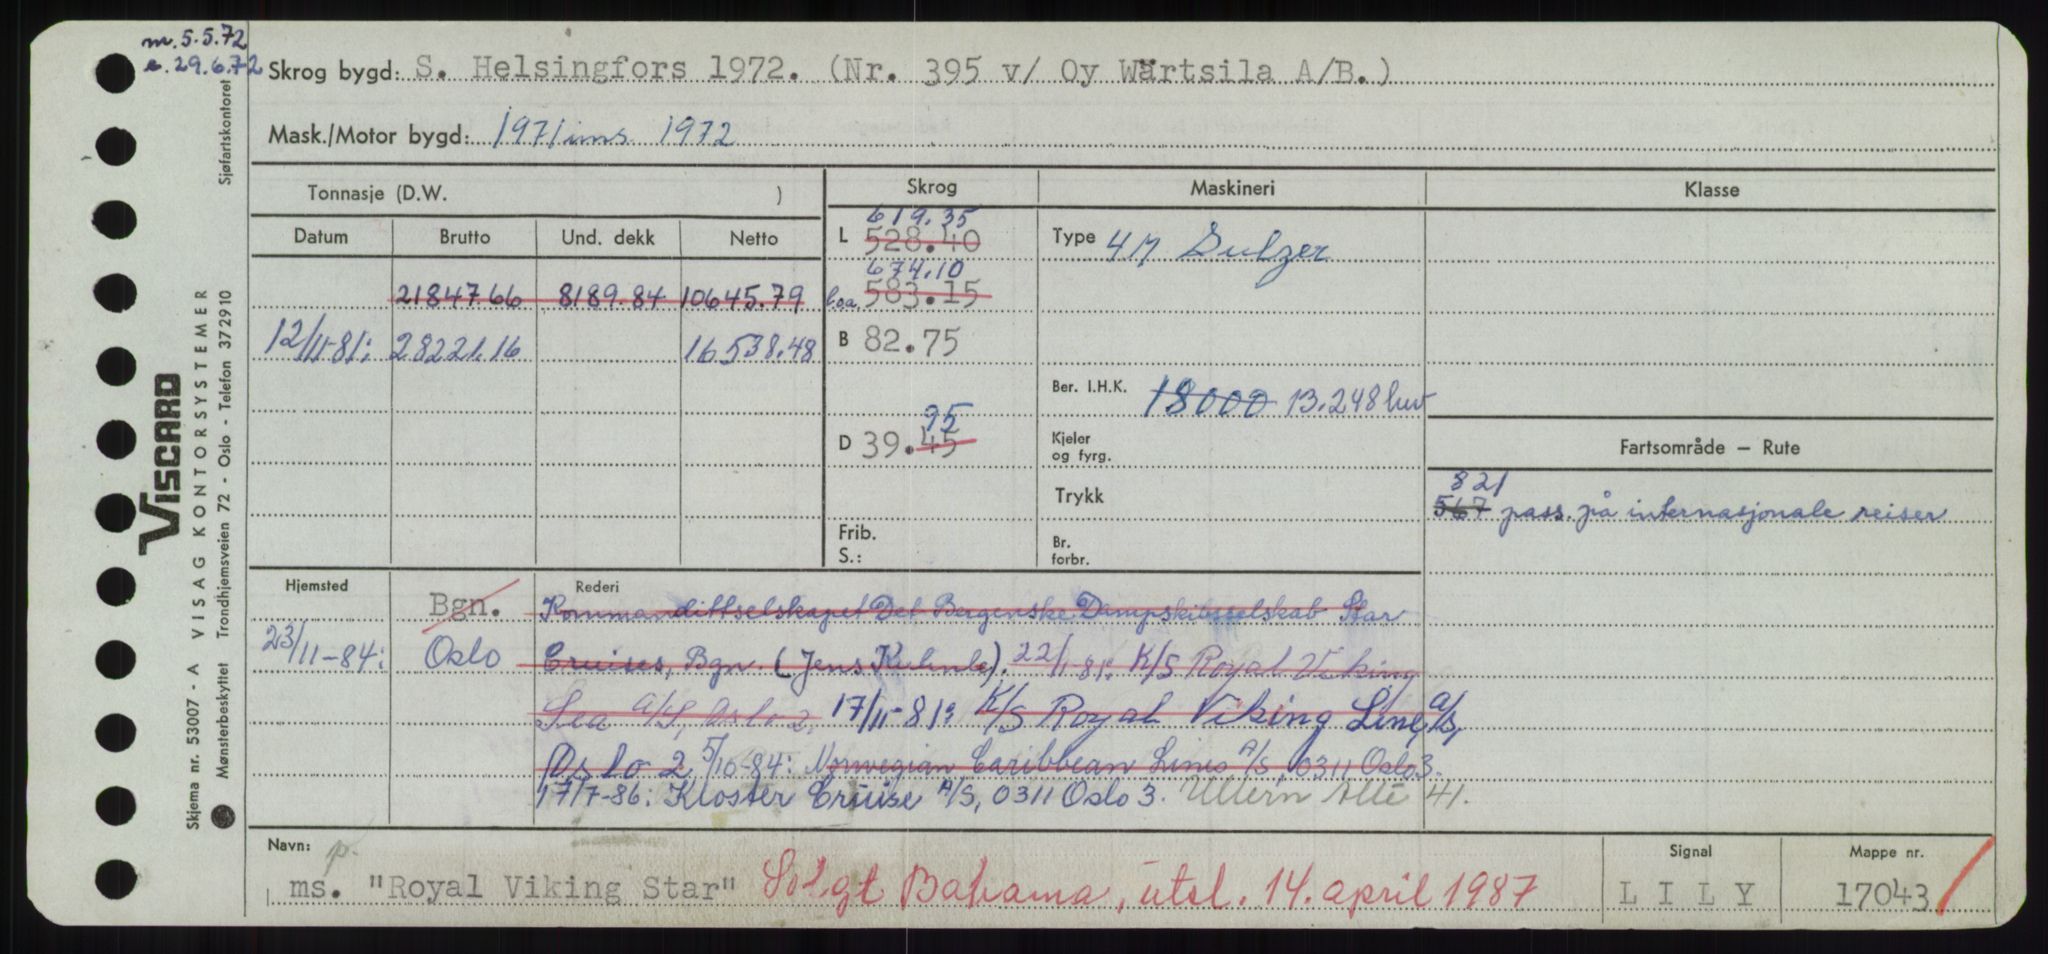 m. 5.5.72
e. 29.6.72
Skrog bygd: S. Helsingfors 1972. (Nr. 395 v/ Oy Wärtsila A/B.)
Mask./Motor bygd: 1971 ins. 1972
Tonnasje (D.W. )
Skrog
Maskineri
Klasse
Datum Brutto Und. dekk Netto
21847.66 8189.84 10645.79
12/11-81: 28221.16 16538.48
619.35
L 528.40
674.10
l.o.a. 583.15
B 82.75
95
D 39.45
Frib.
S.:
Type 4M Sulzer
Ber. I.H.K. 18000 13.248 kw
Kjeler
og fyrg.
Trykk
Br.
forbr.
Fartsområde – Rute
821
567 pass. på internasjonale reiser
Hjemsted
Rederi
Bgn. Kommandittselskapet Det Bergenske Dampskibsselskab Star
23/11-84: Oslo Cruises, Bgn. (Jens Kuhnle). 22/1-81: K/S Royal Viking
Sea A/S, Oslo 2. 17/11-81: K/S Royal Viking Line A/S,
Oslo 2. 5/10-84: Norwegian Caribbean Lines A/S, 0311 Oslo 3.
17/7-86: Kloster Cruise A/S, 0311 Oslo 3. Ullern Allé 41.
Navn: p.
ms. "Royal Viking Star" Solgt Bahama, utsl. 14. april 1987
Signal
LILY
Mappe nr.
17043
Skjema nr. 53007 - A VISAG KONTORSYSTEMER
VISCARD
Mønsterbeskyttet Trondhjemsveien 72 - Oslo - Telefon 372910
Sjøfartskontoret